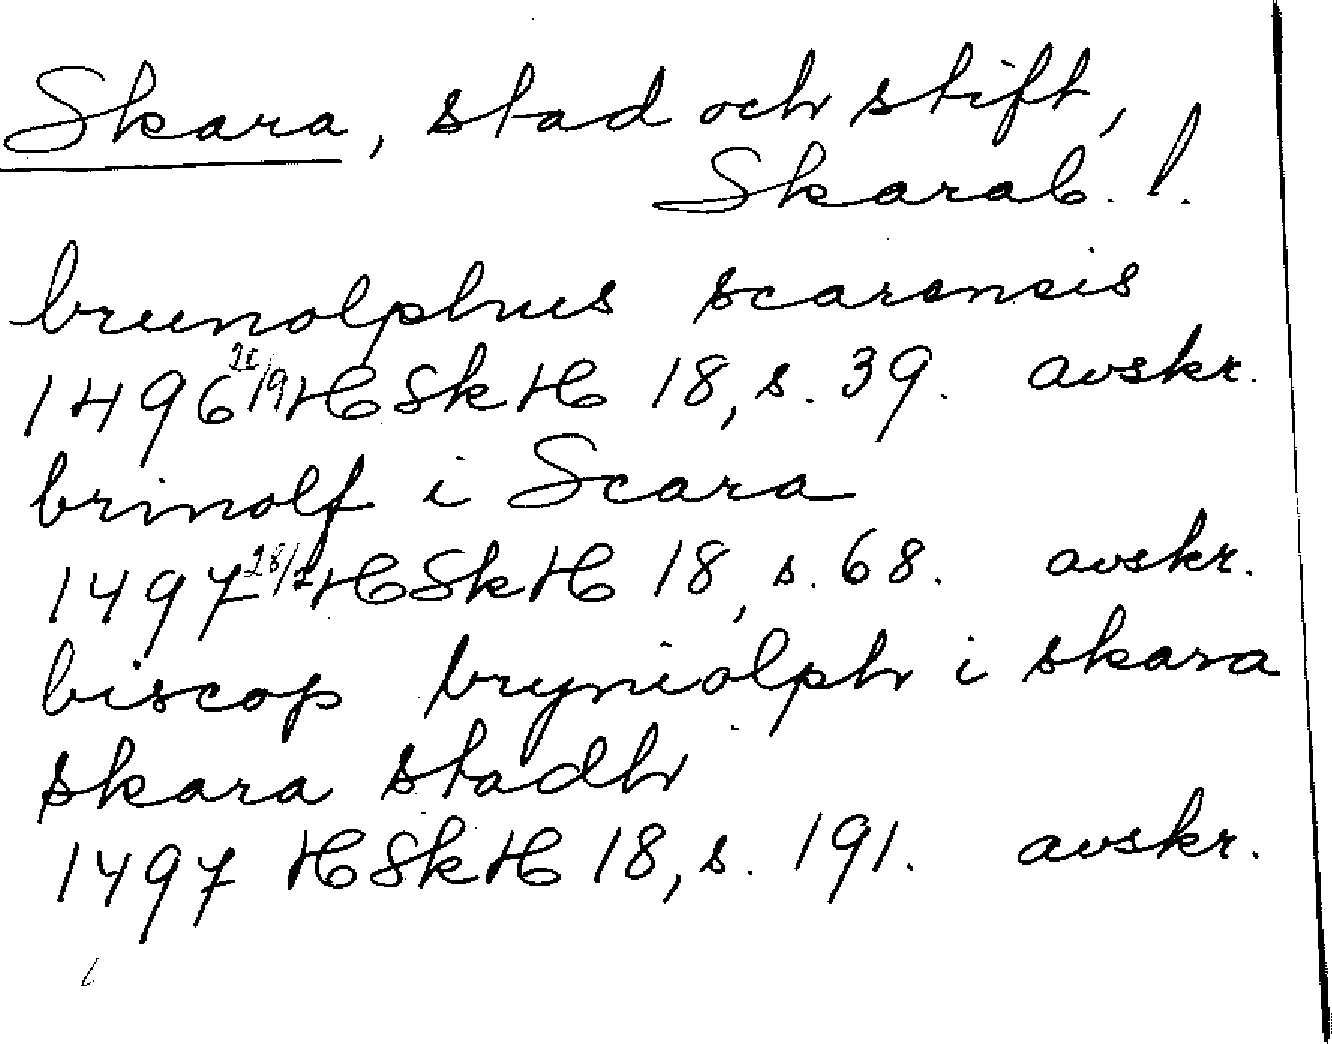 Skara, stad och stift,
Skarab. l.
brunolphus scarensis
1496 /9 HSkH 18, s. 39. avskr.
brinolf i Scara
1497 28/2 HSkH 18, s. 68. avskr.
biscop bryniolph i skara
skara stadh
1497 HSkH 18, s. 191. avskr.